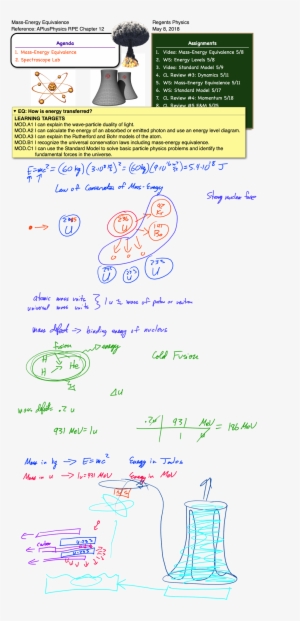 Mass-Energy Equivalence
Reference: APlusPhysics RPE Chapter 12
Regents Physics
May 8, 2018
Agenda
1. Mass-Energy Equivalence
2. Spectroscope Lab
Assignments
1. Video: Mass-Energy Equivalence 5/8
2. WS: Energy Levels 5/8
3. Video: Standard Model 5/9
4. CL Review #3: Dynamics 5/11
5. WS: Mass-Energy Equivalence 5/11
6. WS: Standard Model 5/17
7. CL Review #4: Momentum 5/18
8. CL Review #5 E&M 5/25
• EQ: How is energy transferred?
LEARNING TARGETS
MOD.A1 I can explain the wave-particle duality of light.
MOD.A2 I can calculate the energy of an absorbed or emitted photon and use an energy level diagram.
MOD.A3 I can explain the Rutherford and Bohr models of the atom.
MOD.B1 I recognize the universal conservation laws including mass-energy equivalence.
MOD.C1 I can use the Standard Model to solve basic particle physics problems and identify the
fundamental forces in the universe.
E=mc²=(60kg)(3·10⁸ m/s)²=(60kg)(9·10¹⁶ m²/s²)=5.4·10¹⁸ J
Law of Conservation of Mass-Energy
Strong nuclear force
235 U
236 U
Kr
141 Ba
U
U
U
atomic mass units
universal mass units
} 1u ≈ mass of proton or neutron
mass defect → binding energy of nucleus
Fusion
energy
H
H → He
Cold Fusion
Δu
mass defect: .2u
931 MeV=1u
.2u 931 MeV = 186 MeV
1 u
Mass in kg → E=mc² Energy in Joules
Mass in u → 1u=931 MeV Energy in MeV
carbon
U-235
U-235